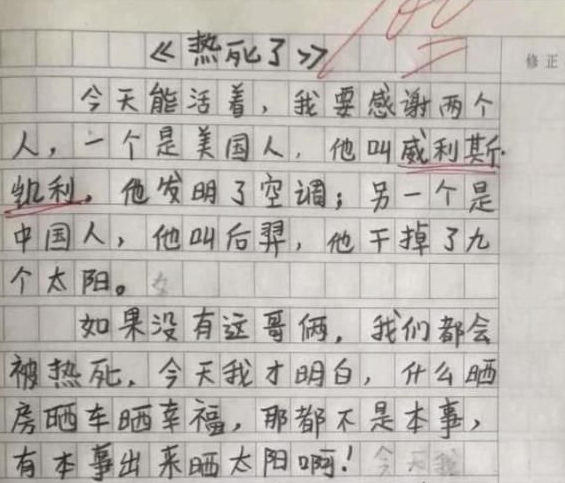 100
修正
《热死了》
今天能活着，我要感谢两个
人，一个是美国人，他叫威利斯·
凯利，他发明了空调；另一个是
中国人，他叫后羿，他干掉了九
个太阳。
如果没有这哥俩，我们都会
被热死，今天我才明白，什么晒
房晒车晒幸福，那都不是本事，
有本事出来晒太阳啊！今天我